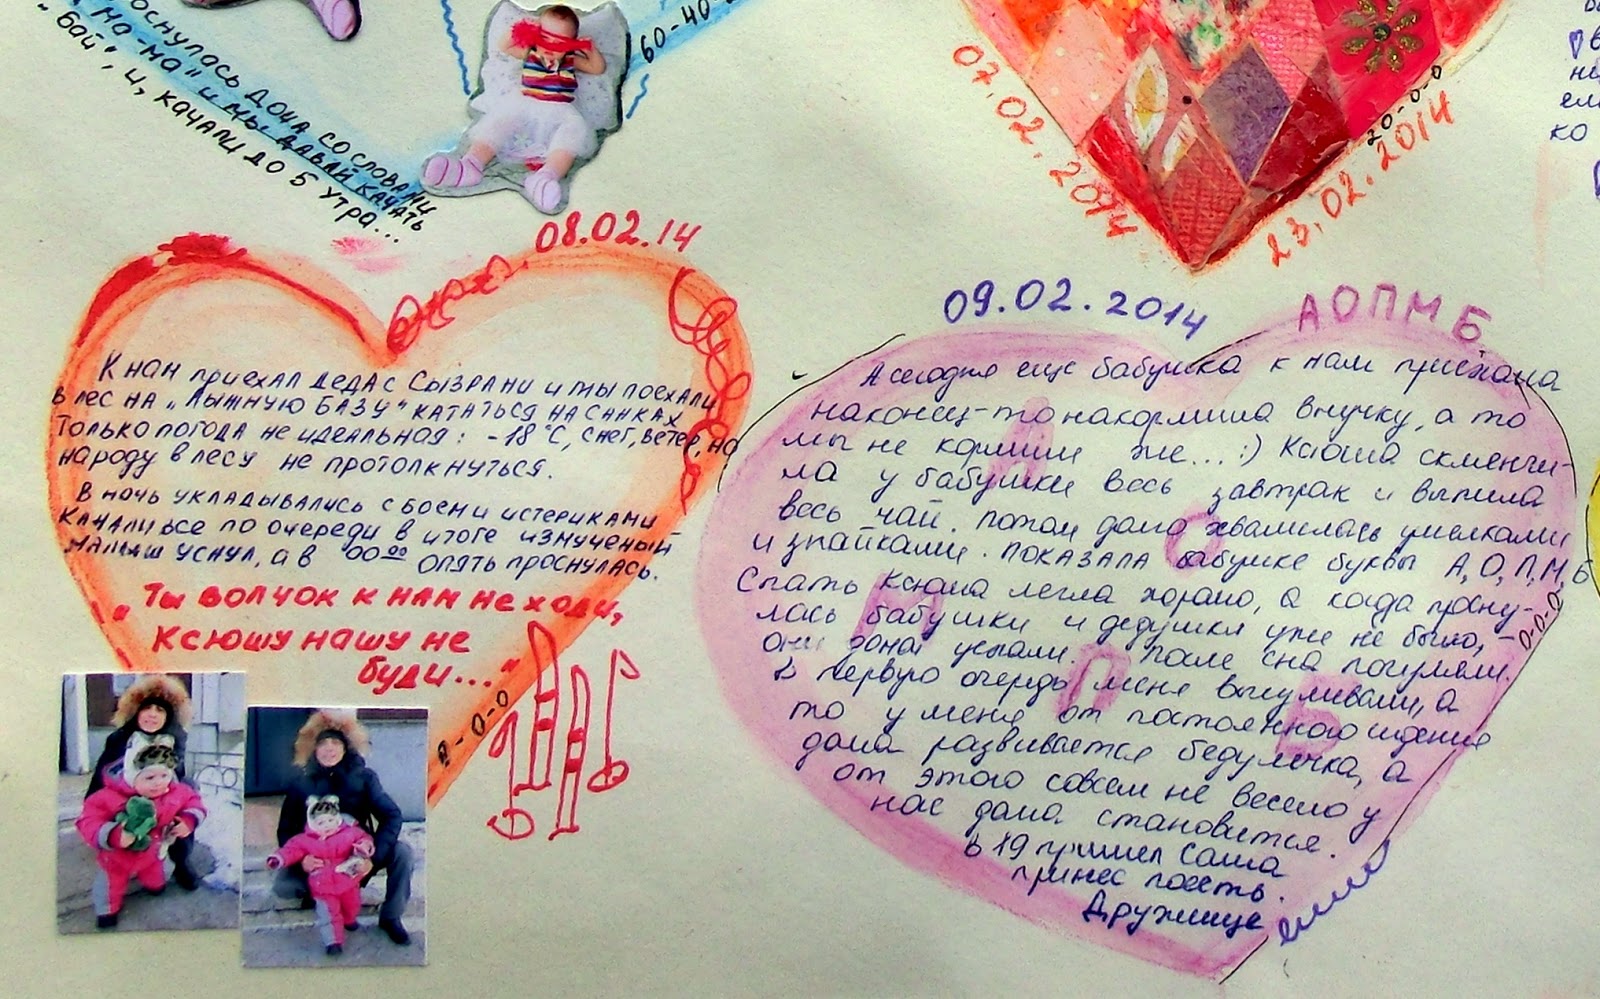 оснулась доча со словами
"ма-ма" и мы давай качать
"бай", и, качали до 5 утра...
60-40-
07.02.2014
20-0-0
23.02.2014
ко
08.02.14
К нам приехал деда с Сызрани и мы поехали
в лес на "Лыжную базу" кататься на санках
Только погода не идеальная: -18°С, снег, ветер, но
народу в лесу не протолкнуться.
В ночь укладывались с боем и истериками
качали все по очереди в итоге измученый
малыш уснул, а в 00 00 опять проснулась.
"Ты волчок к нам не ходи,
Ксюшу нашу не
буди..."
-0-0
09.02.2014
АОПМБ
А сегодня еще бабушка к нам приехала
наконец-то накормила внучку, а то
мы не кормим же... :) Ксюша скленчи-
ла у бабушки весь завтрак и выпила
весь чай. Потом долго хвалилась умелками
и знайками. Показала бабушке буквы А, О, П, М, Б
Спать Ксюша легла хорошо, а когда просну-
лась бабушки и дедушки уже не было, -
они дома устали. После сна погуляли.
В первую очередь меня выгуливали, а
то у меня от постоянного сидения
дома развивается бедулечка, а
от этого совсем не весело у
нас дома становится.
в 19 пришел Саша
принес поесть.
Дружище
0-0-0